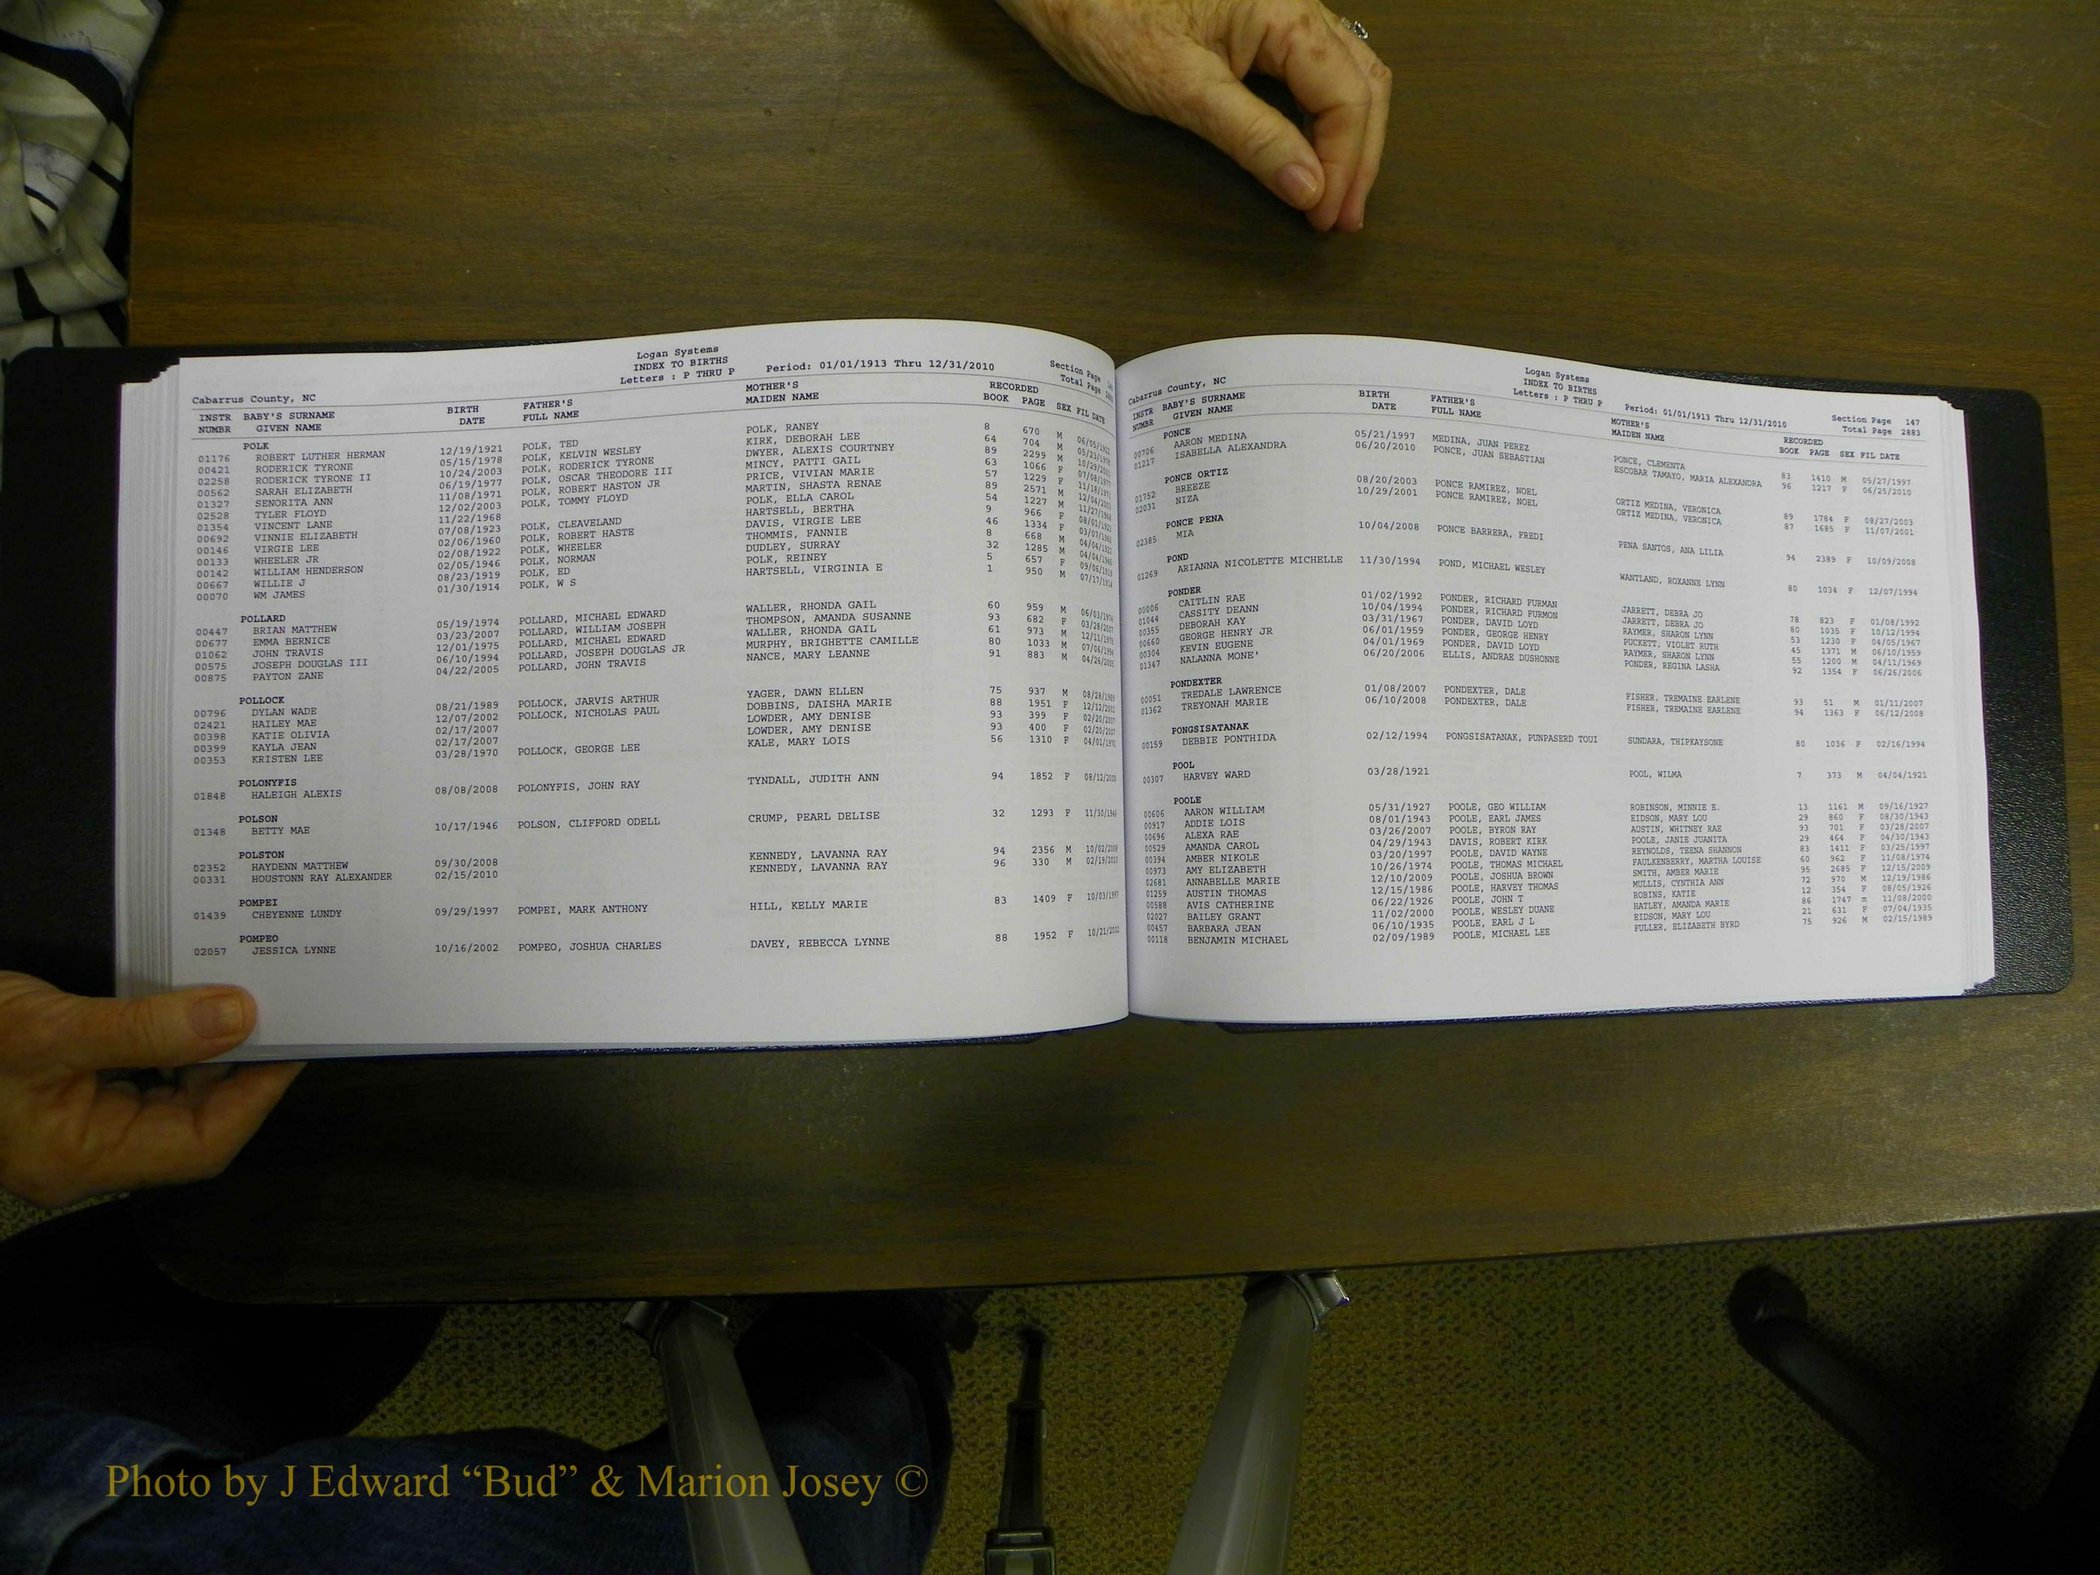 Logan Systems
INDEX TO BIRTHS
Letters : P THRU P Period: 01/01/1913 Thru 12/31/2010 Section Page
Cabarrus County, NC Total Page
INSTR BABY'S SURNAME BIRTH FATHER'S MOTHER'S RECORDED
NUMBR GIVEN NAME DATE FULL NAME MAIDEN NAME BOOK PAGE SEX FIL DATE
POLK
01176 ROBERT LUTHER HERMAN 12/19/1921 POLK, TED POLK, RANEY 8 670 M 06/05/1922
00421 RODERICK TYRONE 05/15/1978 POLK, KELVIN WESLEY KIRK, DEBORAH LEE 64 704 M 05/23/1978
02258 RODERICK TYRONE II 10/24/2003 POLK, RODERICK TYRONE DWYER, ALEXIS COURTNEY 89 2299 M 10/29/2003
00562 SARAH ELIZABETH 06/19/1977 POLK, OSCAR THEODORE III MINCY, PATTI GAIL 63 1066 F 07/08/1977
01327 SENORITA ANN 11/08/1971 POLK, ROBERT HASTON JR PRICE, VIVIAN MARIE 57 1229 F 11/18/1971
02528 TYLER FLOYD 12/02/2003 POLK, TOMMY FLOYD MARTIN, SHASTA RENAE 89 2571 M 12/04/2003
01354 VINCENT LANE 11/22/1968 POLK, ELLA CAROL 54 1227 M 11/27/1968
00692 VINNIE ELIZABETH 07/08/1923 POLK, CLEAVELAND HARTSELL, BERTHA 9 966 F 08/01/1923
00146 VIRGIE LEE 02/06/1960 POLK, ROBERT HASTE DAVIS, VIRGIE LEE 46 1334 F 03/07/1960
00133 WHEELER JR 02/08/1922 POLK, WHEELER THOMMIS, FANNIE 8 668 M 04/04/1922
00142 WILLIAM HENDERSON 02/05/1946 POLK, NORMAN DUDLEY, SURRAY 32 1285 M 04/04/1946
00667 WILLIE J 08/23/1919 POLK, ED POLK, REINEY 5 657 F 09/06/1919
00070 WM JAMES 01/30/1914 POLK, W S HARTSELL, VIRGINIA E 1 950 M 07/17/1914
POLLARD
00447 BRIAN MATTHEW 05/19/1974 POLLARD, MICHAEL EDWARD WALLER, RHONDA GAIL 60 959 M 06/03/1974
00677 EMMA BERNICE 03/23/2007 POLLARD, WILLIAM JOSEPH THOMPSON, AMANDA SUSANNE 93 682 F 03/28/2007
01062 JOHN TRAVIS 12/01/1975 POLLARD, MICHAEL EDWARD WALLER, RHONDA GAIL 61 973 M 12/11/1975
00575 JOSEPH DOUGLAS III 06/10/1994 POLLARD, JOSEPH DOUGLAS JR MURPHY, BRIGHETTE CAMILLE 80 1033 M 07/06/1994
00875 PAYTON ZANE 04/22/2005 POLLARD, JOHN TRAVIS NANCE, MARY LEANNE 91 883 M 04/26/2005
POLLOCK
00796 DYLAN WADE 08/21/1989 POLLOCK, JARVIS ARTHUR YAGER, DAWN ELLEN 75 937 M 08/28/1989
02421 HAILEY MAE 12/07/2002 POLLOCK, NICHOLAS PAUL DOBBINS, DAISHA MARIE 88 1951 F 12/12/2002
00398 KATIE OLIVIA 02/17/2007 LOWDER, AMY DENISE 93 399 F 02/20/2007
00399 KAYLA JEAN 02/17/2007 LOWDER, AMY DENISE 93 400 F 02/20/2007
00353 KRISTEN LEE 03/28/1970 POLLOCK, GEORGE LEE KALE, MARY LOIS 56 1310 F 04/01/1970
POLONYFIS
01848 HALEIGH ALEXIS 08/08/2008 POLONYFIS, JOHN RAY TYNDALL, JUDITH ANN 94 1852 F 08/12/2008
POLSON
01348 BETTY MAE 10/17/1946 POLSON, CLIFFORD ODELL CRUMP, PEARL DELISE 32 1293 F 11/30/1946
POLSTON
02352 HAYDENN MATTHEW 09/30/2008 KENNEDY, LAVANNA RAY 94 2356 M 10/02/2008
00331 HOUSTONN RAY ALEXANDER 02/15/2010 KENNEDY, LAVANNA RAY 96 330 M 02/19/2010
POMPEI
01439 CHEYENNE LUNDY 09/29/1997 POMPEI, MARK ANTHONY HILL, KELLY MARIE 83 1409 F 10/03/1997
POMPEO
02057 JESSICA LYNNE 10/16/2002 POMPEO, JOSHUA CHARLES DAVEY, REBECCA LYNNE 88 1952 F 10/21/2002
Logan Systems
INDEX TO BIRTHS
Letters : P THRU P Period: 01/01/1913 Thru 12/31/2010 Section Page 147
Cabarrus County, NC Total Page 2883
INSTR BABY'S SURNAME BIRTH FATHER'S MOTHER'S RECORDED
NUMBR GIVEN NAME DATE FULL NAME MAIDEN NAME BOOK PAGE SEX FIL DATE
PONCE
00706 AARON MEDINA 05/21/1997 MEDINA, JUAN PEREZ PONCE, CLEMENTA 83 1410 M 05/27/1997
01217 ISABELLA ALEXANDRA 06/20/2010 PONCE, JUAN SEBASTIAN ESCOBAR TAMAYO, MARIA ALEXANDRA 96 1217 F 06/25/2010
PONCE ORTIZ
01752 BREEZE 08/20/2003 PONCE RAMIREZ, NOEL ORTIZ MEDINA, VERONICA 89 1784 F 08/27/2003
02031 NIZA 10/29/2001 PONCE RAMIREZ, NOEL ORTIZ MEDINA, VERONICA 87 1685 F 11/07/2001
PONCE PENA
02385 MIA 10/04/2008 PONCE BARRERA, FREDI PENA SANTOS, ANA LILIA 94 2389 F 10/09/2008
POND
01269 ARIANNA NICOLETTE MICHELLE 11/30/1994 POND, MICHAEL WESLEY WANTLAND, ROXANNE LYNN 80 1034 F 12/07/1994
PONDER
00006 CAITLIN RAE 01/02/1992 PONDER, RICHARD FURMAN JARRETT, DEBRA JO 78 823 F 01/08/1992
01044 CASSITY DEANN 10/04/1994 PONDER, RICHARD FURMON JARRETT, DEBRA JO 80 1035 F 10/12/1994
00355 DEBORAH KAY 03/31/1967 PONDER, DAVID LOYD RAYMER, SHARON LYNN 53 1230 F 04/05/1967
00660 GEORGE HENRY JR 06/01/1959 PONDER, GEORGE HENRY PUCKETT, VIOLET RUTH 45 1371 M 06/10/1959
00304 KEVIN EUGENE 04/01/1969 PONDER, DAVID LOYD RAYMER, SHARON LYNN 55 1200 M 04/11/1969
01347 NALANNA MONE' 06/20/2006 ELLIS, ANDRAE DUSHONNE PONDER, REGINA LASHA 92 1354 F 06/26/2006
PONDEXTER
00051 TREDALE LAWRENCE 01/08/2007 PONDEXTER, DALE FISHER, TREMAINE EARLENE 93 51 M 01/11/2007
01362 TREYONAH MARIE 06/10/2008 PONDEXTER, DALE FISHER, TREMAINE EARLENE 94 1363 F 06/12/2008
PONGSISATANAK
00159 DEBBIE PONTHIDA 02/12/1994 PONGSISATANAK, PUNPASERD TOUI SUNDARA, THIPKAYSONE 80 1036 F 02/16/1994
POOL
00307 HARVEY WARD 03/28/1921 POOL, WILMA 7 373 M 04/04/1921
POOLE
00606 AARON WILLIAM 05/31/1927 POOLE, GEO WILLIAM ROBINSON, MINNIE E. 13 1161 M 09/16/1927
00917 ADDIE LOIS 08/01/1943 POOLE, EARL JAMES EIDSON, MARY LOU 29 860 F 08/30/1943
00696 ALEXA RAE 03/26/2007 POOLE, BYRON RAY AUSTIN, WHITNEY RAE 93 701 F 03/28/2007
00529 AMANDA CAROL 04/29/1943 DAVIS, ROBERT KIRK POOLE, JANIE JUANITA 29 464 F 04/30/1943
00394 AMBER NIKOLE 03/20/1997 POOLE, DAVID WAYNE REYNOLDS, TEENA SHANNON 83 1411 F 03/25/1997
00973 AMY ELIZABETH 10/26/1974 POOLE, THOMAS MICHAEL FAULKENBERRY, MARTHA LOUISE 60 962 F 11/08/1974
02681 ANNABELLE MARIE 12/10/2009 POOLE, JOSHUA BROWN SMITH, AMBER MARIE 95 2685 F 12/15/2009
01259 AUSTIN THOMAS 12/15/1986 POOLE, HARVEY THOMAS MULLIS, CYNTHIA ANN 72 970 M 12/19/1986
00588 AVIS CATHERINE 06/22/1926 POOLE, JOHN T ROBINS, KATIE 12 354 F 08/05/1926
02027 BAILEY GRANT 11/02/2000 POOLE, WESLEY DUANE HATLEY, AMANDA MARIE 86 1747 m 11/08/2000
00457 BARBARA JEAN 06/10/1935 POOLE, EARL J L EIDSON, MARY LOU 21 631 F 07/04/1935
00118 BENJAMIN MICHAEL 02/09/1989 POOLE, MICHAEL LEE FULLER, ELIZABETH BYRD 75 926 M 02/15/1989
Photo by J Edward “Bud” & Marion Josey ©